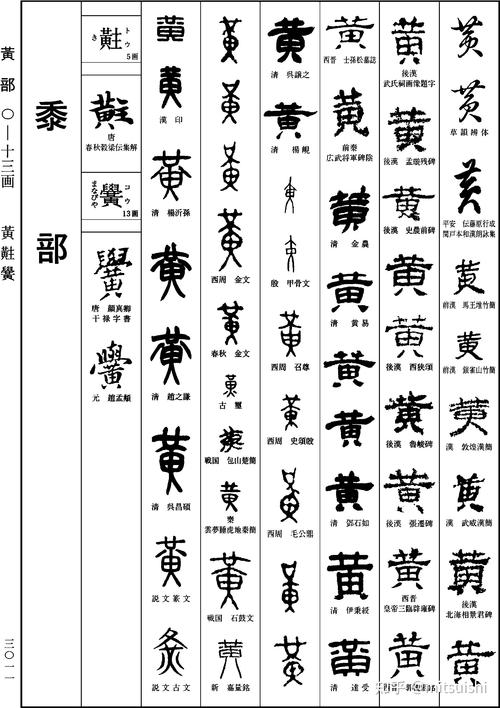 草韻辨体
平安 伝藤原行成
関戸本和漢朗詠集
前漢 馬王堆竹簡
前漢 銀雀山竹簡
漢 敦煌漢簡
漢 武威漢簡
後漢
北海相景君碑
黃
後漢
武氏祠画像題字
後漢 孟琁残碑
後漢 史晨前碑
後漢 西狭頌
後漢 魯峻碑
後漢 張遷碑
西晋
皇帝三臨辟雍碑
西晋 士孫松墓誌
前秦
広武将軍碑陰
清 金農
清 黄易
清 鄧石如
清 伊秉綬
清 達受
清 呉譲之
清 楊峴
殷 甲骨文
西周 召尊
西周 史頌𣪘
西周 毛公鼎
西周 金文
春秋 金文
古璽
戦国 包山楚簡
秦
雲夢睡虎地秦簡
戦国 石鼓文
新 嘉量銘
漢 印
清 楊沂孫
清 趙之謙
清 呉昌碩
説文篆文
説文古文
黈
トウ
き
5画
唐
春秋穀梁伝集解
黌
コウ
まなびや
13画
唐 顔真卿
干禄字書
元 趙孟頫
黍
部
黃部 〇—十三画 黃黈黌
三〇一一
知乎 @mitsuishi